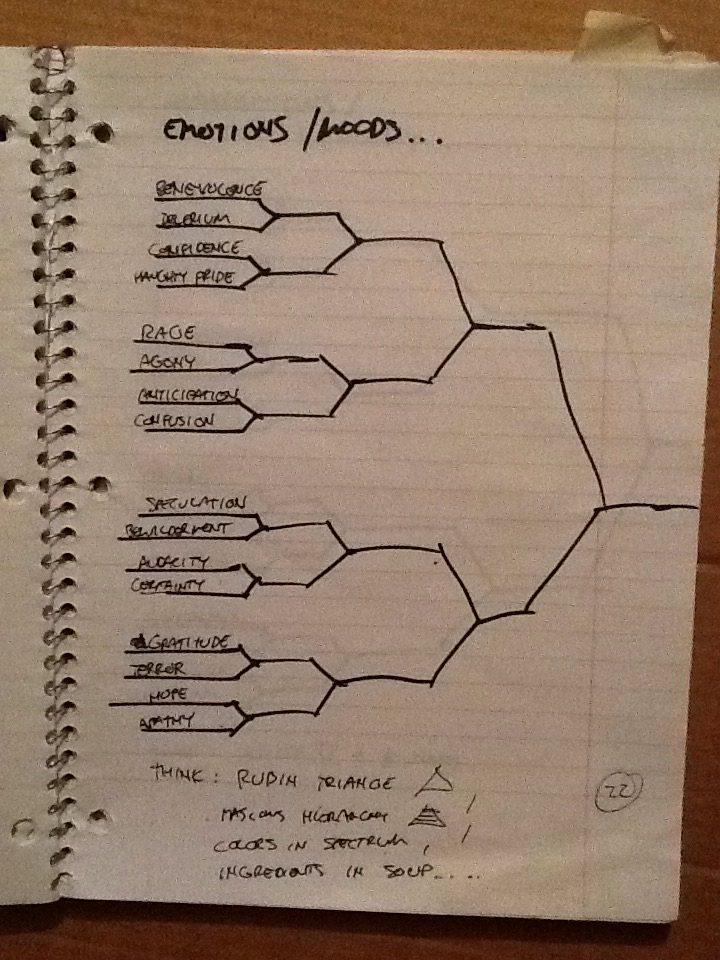 EMOTIONS / MOODS...
BENEVOLENCE
DELERIUM
CONFIDENCE
HAUGHTY PRIDE
RAGE
AGONY
ANTICIPATION
CONFUSION
SPECULATION
BEWILDERMENT
AUDACITY
CERTAINTY
GRATITUDE
TERROR
HOPE
APATHY
THINK: RUBIN TRIANGE
MASLOWS HIERARCHY
COLORS IN SPECTRUM,
INGREDIENTS IN SOUP.....
22